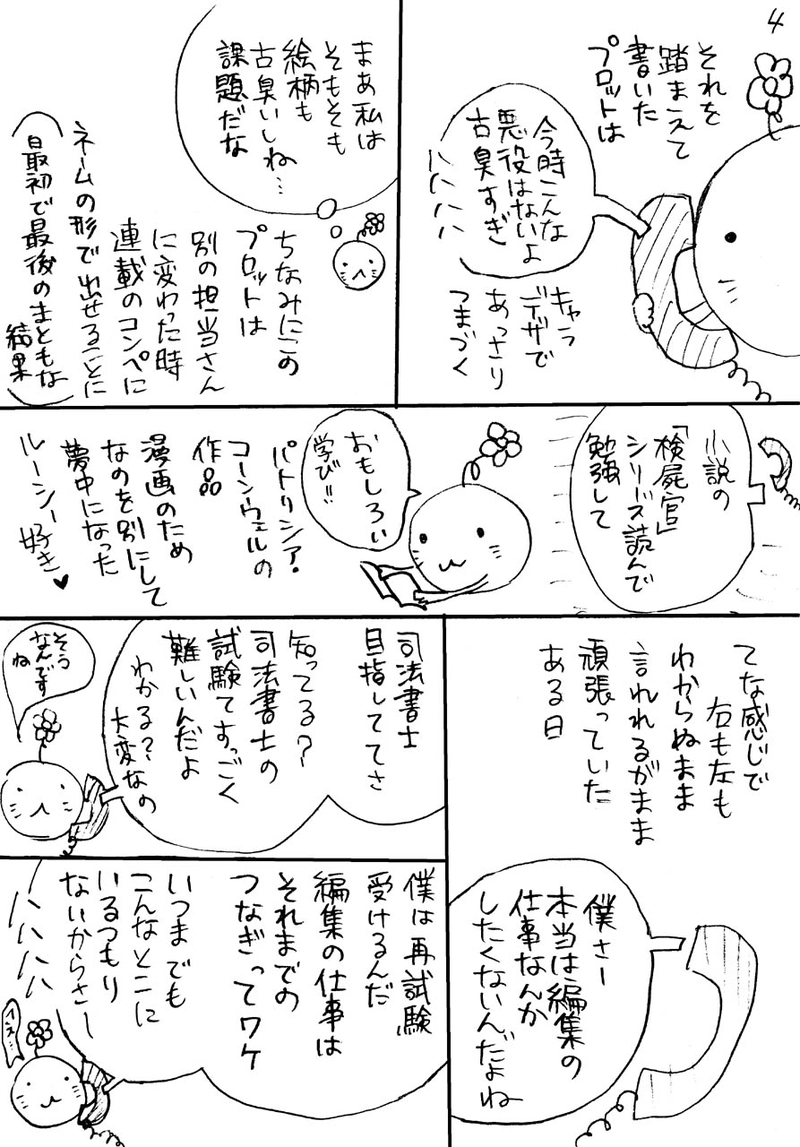 4
それを
踏まえて
書いた
プロットは
今時こんな
悪役はないよ
古臭すぎ
ハハハハ
キャラ
デザで
あっさり
つまづく
まあ私は
そもそも
絵柄も
古臭いしね…
課題だな
ちなみにこの
プロットは
別の担当さん
に変わった時
連載のコンペに
ネームの形で出せることに
最初で最後のまともな
結果
小説の
「検屍官」
シリーズ読んで
勉強して
おもしろい
学び!!
パトリシア・
コーンウェルの
作品
漫画のため
なのを別にして
夢中になった
ルーシー好き♥
てな感じで
右も左も
わからぬまま
言われるがまま
頑張っていた
ある日
僕さー
本当は編集の
仕事なんか
したくないんだよね
司法書士
目指しててさ
知ってる?
司法書士の
試験てすっごく
難しいんだよ
わかる?
大変なの
そう
なんです
ね
僕は再試験
受けるんだ
編集の仕事は
それまでの
つなぎってワケ
いつまでも
こんなとこに
いるつもり
ないからさー
ハハハハ